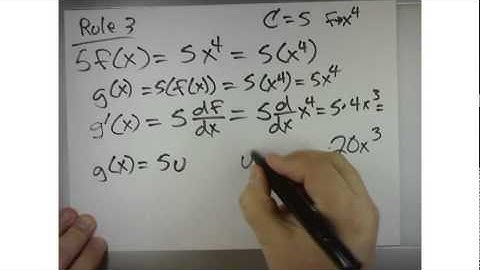 Rule 3
C = 5 F→x⁴
5f(x) = 5x⁴ = 5(x⁴)
g(x) = 5(f(x)) = 5(x⁴) = 5x⁴
g'(x) = 5 df/dx = 5 d/dx x⁴ = 5·4x³ =
20x³
g(x) = 5u u